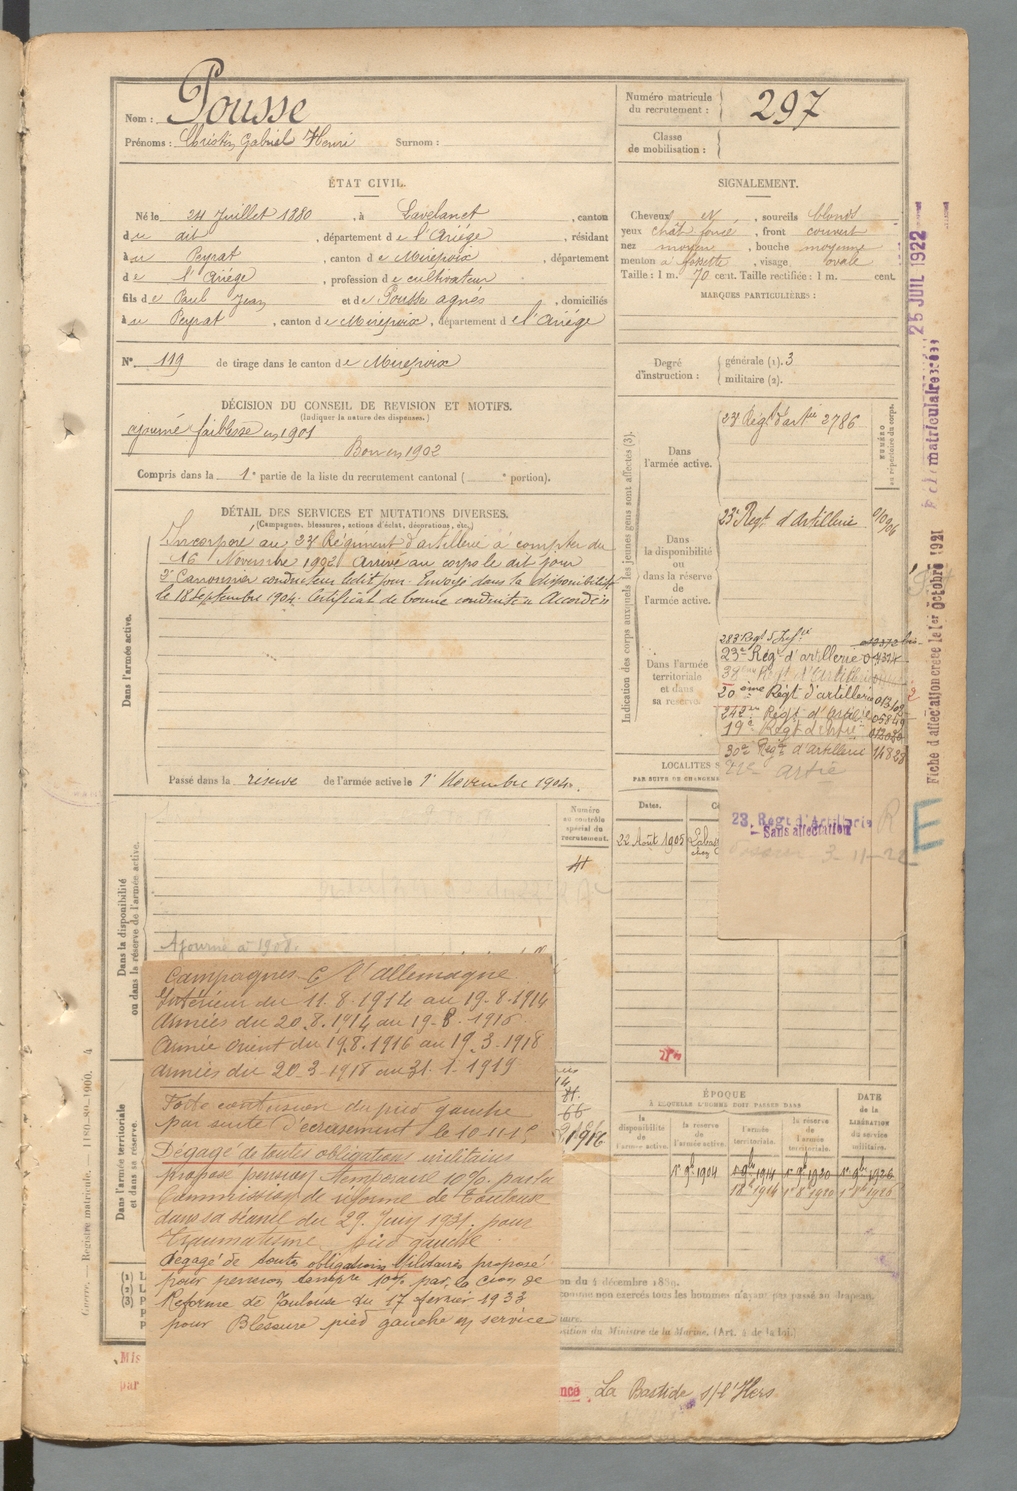 Nom : Pousse
Prénoms : Christin Gabriel Henri Surnom :
Numéro matricule du recrutement : 297
Classe de mobilisation :
ÉTAT CIVIL.
Né le 24 Juillet 1880, à Lavelanet, canton
du dit, département de l'Ariége, résidant
à u Peyrat, canton de Mirepoix, département
de l'Ariége, profession de cultivateur
fils de Paul Jean et de Pousse agnès, domiciliés
à u Peyrat, canton de Mirepoix, département de l'Ariége
N° 119 de tirage dans le canton de Mirepoix
SIGNALEMENT.
Cheveux N, sourcils blonds
yeux chât foncé, front couvert
nez moyen, bouche moyenne
menton à fossette, visage ovale
Taille : 1 m. 70 cent. Taille rectifiée : 1 m. cent.
MARQUES PARTICULIÈRES :
Degré d'instruction : générale (1). 3
militaire (2).
DÉCISION DU CONSEIL DE REVISION ET MOTIFS.
(Indiquer la nature des dispenses.)
ajourné faiblesse en 1901
Bon en 1902
Compris dans la 1e partie de la liste du recrutement cantonal ( e portion).
DÉTAIL DES SERVICES ET MUTATIONS DIVERSES.
(Campagnes, blessures, actions d'éclat, décorations, etc.)
Dans l'armée active.
Incorporé au 23e Régiment d'artillerie à compter du
16 Novembre 1902 Arrivé au corps le dit jour
2e Cannonier conducteur ledit jour. Envoyé dans la disponibilité
le 18 Septembre 1904. Certificat de bonne conduite "Accordé"
Passé dans la réserve de l'armée active le 1er Novembre 1904.
Indication des corps auxquels les jeunes gens sont affectés (3).
NUMÉRO au répertoire du corps.
Dans l'armée active.
23e Régt d'artie 2786
Dans la disponibilité ou dans la réserve de l'armée active.
23e Régt d'Artillerie
Dans l'armée territoriale et dans sa réserve.
23e Rég. d'artillerie
20ème Régt d'artillerie
242e Régt d'Artillerie
19e Régt
30e Régt d'artillerie 14823
23. Regt d'Artillerie
- Sans affectation
LOCALITES S
PAR SUITE DE CHANGEME
Dates.
22 Août 1905
Dans la disponibilité ou dans la réserve de l'armée active.
Numéro au contrôle spécial du recrutement.
Ajourné à 1908.
Campagnes c/ l'allemagne
Intérieur du 11.8.1914 au 19.8.1914
Armées du 20.8.1914 au 19.8.1916
Armée Orient du 19.8.1916 au 19.3.1918
Armées du 20.3.1918 au 31.1.1919
Forte contusion du pied gauche
par suite d'écrasement le 10.11.15
Dégagé de toutes obligations militaires
proposé pension temporaire 10% par la
Commission de réforme de Toulouse
dans sa séance du 29 Juin 1931. pour
traumatisme pied gauche
Dégagé de toutes obligations Militaires proposé
pour pension tempre 10% par la Cion de
Réforme de Toulouse du 17 fevrier 1933
pour Blessure pied gauche en service
Dans l'armée territoriale et dans sa réserve.
ÉPOQUE
À LAQUELLE L'HOMME DOIT PASSER DANS
la disponibilité de l'armée active.
la réserve de l'armée active.
l'armée territoriale.
la réserve de l'armée territoriale.
DATE de la LIBÉRATION du service militaire.
1er 9bre 1904
on du 4 décembre 1889.
comme non exercés tous les hommes n'ayant pas passé au drapeau.
osition du Ministre de la Marine. (Art. 4 de la loi.)
Mis
par
nce La Bastide s/l'Hers
Guerre. — Registre matricule. — 1180-89-1900. 4
25 JUIL 1922
Fiche d'affectation créée le 1er Octobre 1921
E